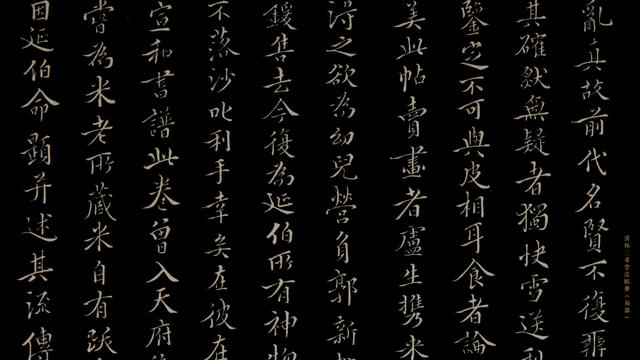 亂真故前代名賢不復辨
其確然無疑者獨快雪送
鑒定不可與皮相耳食者論
美此帖賣畫者盧生攜米
得之欲為幼兒營負郭新
鍰售去今復為延伯所有神物
不落沙叱利手幸矣在彼在
宣和書譜此卷曾入天府
嘗為米老所藏米自有跋
因延伯命題并述其流傳
清拓三希堂法帖册（局部）